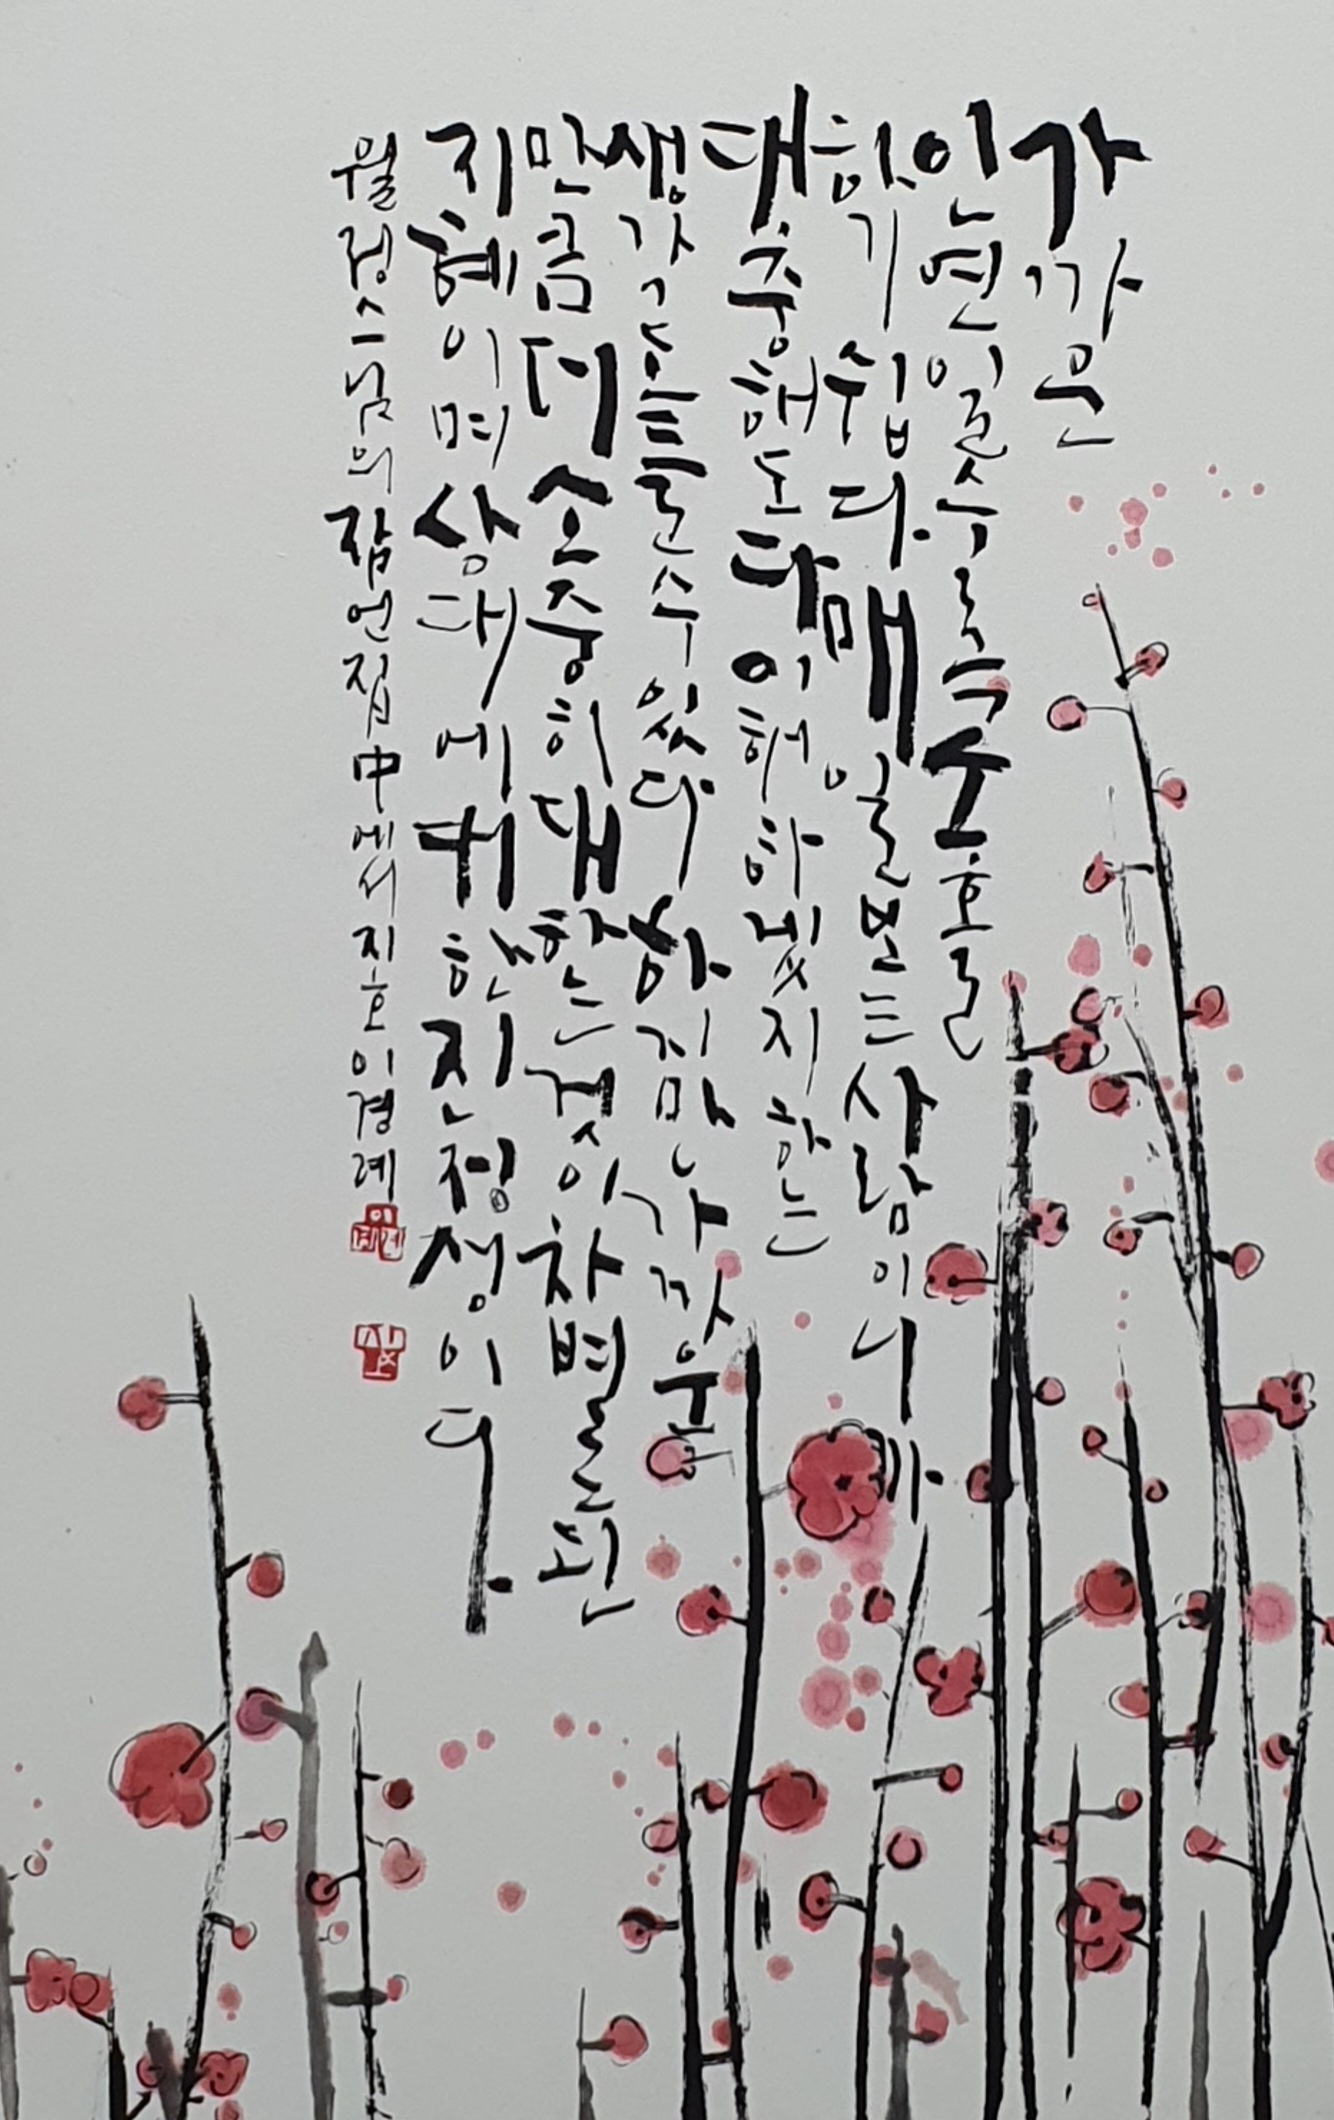 가까운
인연일수록 소홀
하기 쉽다. 매일 보는 사람이니까
대충해도 다 이해하겠지 하는
생각을 들 수 있다 하지만 가까운
만큼 더 소중히 대하는 것이 차별된
지혜이며 상대에 대한 진정성이다.
월정스님의 잠언집中에서 지호 이경례